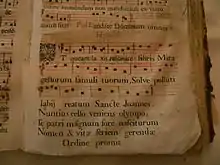 Ut queant la xis resonare fibris Mira
gestorum famuli tuorum, Solve polluti
labij reatum Sancte Joannes.
Nuntius celso veniens olympo,
Te patri magnum fore nasciturum
Nomen & vitæ seriem gerendæ
Ordine promit